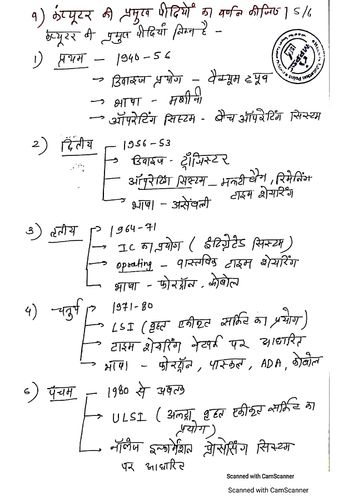 1) कंप्यूटर की प्रमुख पीढियाँ का वर्णन कीजिए | 5/6
कंप्यूटर की प्रमुख पीढियाँ निम्न है -
1) प्रथम - 1940-56
→ डिवाइज प्रयोग - वैक्यूम ट्यूब
→ भाषा - मशीनी
→ ऑपरेटिंग सिस्टम - बैच ऑपरेटिंग सिस्टम
2) द्वितीय → 1956-53
→ डिवाइज - ट्रांजिस्टर
→ ऑपरेटिंग सिस्टम - मल्टी बैच, रिमेनिंग
टाइम शेयरिंग
→ भाषा - असेंबली
3) तृतीय → 1964-71
→ IC का प्रयोग ( इंटिग्रेटेड सिस्टम )
→ oprating - वास्तविक टाइम शेयरिंग
→ भाषा - फोरट्रॉन, कोबोल
4) चतुर्थ → 1971-80
→ LSI ( वृहत एकीकृत सर्किट का प्रयोग )
→ टाइम शेयरिंग नेटवर्क पर आधारित
→ भाषा - फोरट्रॉन, पास्कल, ADA, कोबोल
5) पंचम → 1980 से अबतक
→ ULSI ( अल्ट्रा वृहत एकीकृत सर्किट का
प्रयोग )
→ नॉलेज इन्फार्मेशन प्रोसेसिंग सिस्टम
पर आधारित
Scanned with CamScanner
Scanned with CamScanner